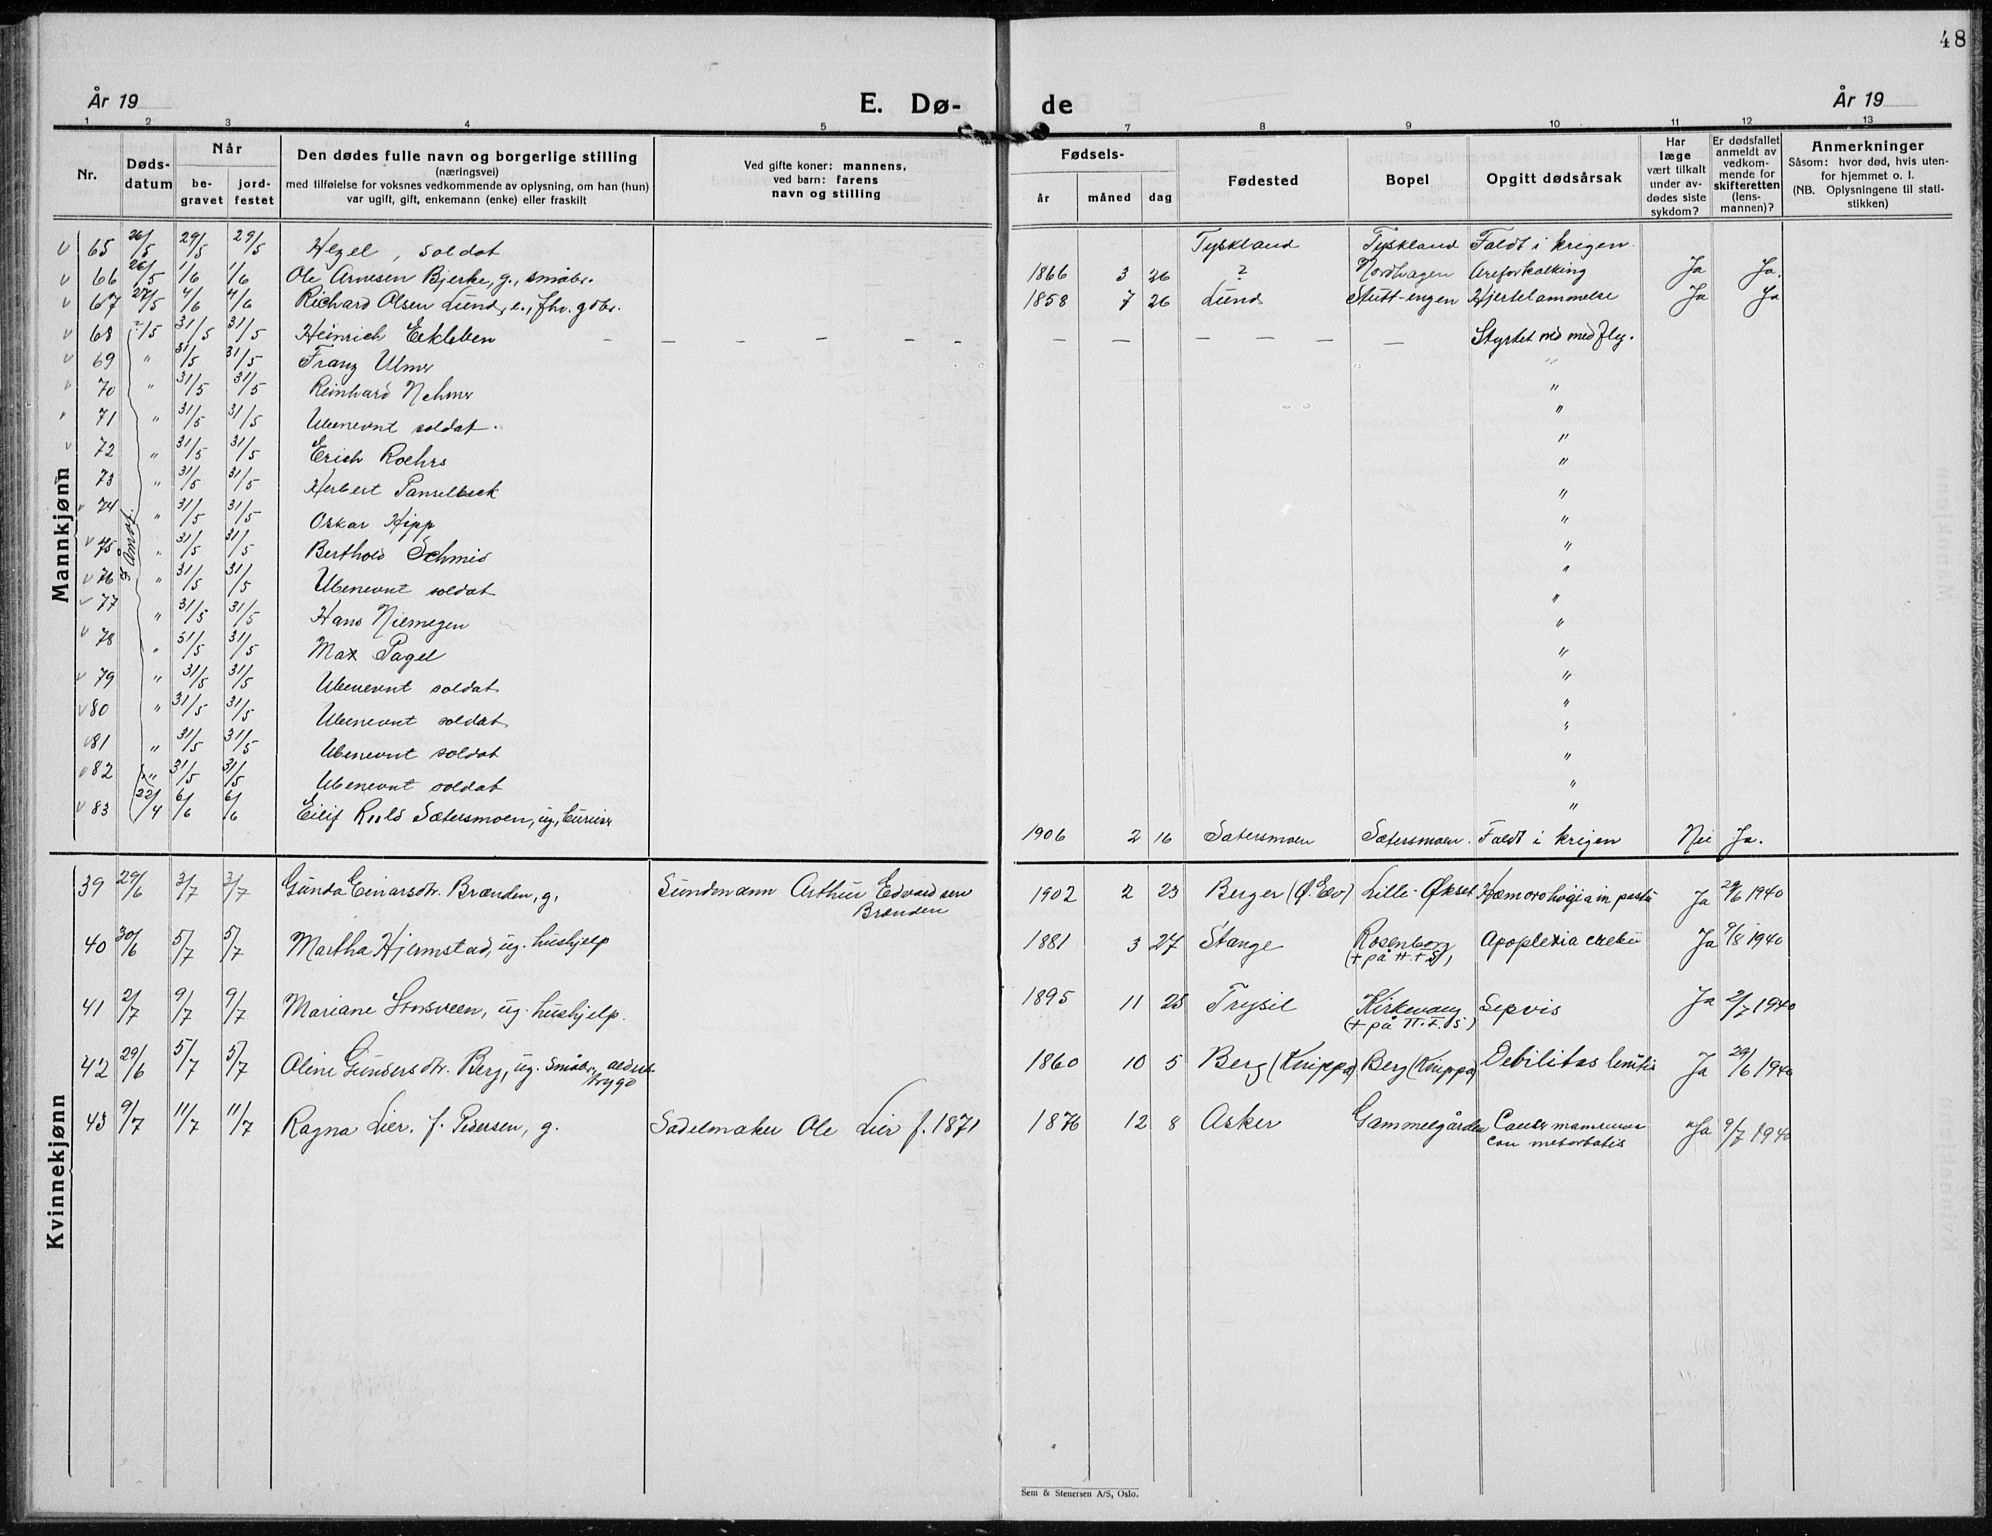 48
År 19
E. Dø-
de
År 19
1 2 3 4 5 7 8 9 10 11 12 13
Nr.
Døds-
datum
Når
be-
gravet
jord-
festet
Den dødes fulle navn og borgerlige stilling
(næringsvei)
med tilføielse for voksnes vedkommende av oplysning, om han (hun)
var ugift, gift, enkemann (enke) eller fraskilt
Ved gifte koner: mannens,
ved barn: farens
navn og stilling
Fødsels-
år
måned
dag
Fødested
Bopel
Opgitt dødsårsak
Har
læge
vært tilkalt
under av-
dødes siste
sykdom?
Er dødsfallet
anmeldt av
vedkom-
mende for
skifteretten
(lens-
mannen)?
Anmerkninger
Såsom: hvor død, hvis uten-
for hjemmet o. l.
(NB. Oplysningene til stati-
stikken)
Mannkjønn
65 26/5 29/5 29/5 Hezel, soldat Tyskland Tyskland Faldt i krigen
66 26/5 1/6 1/6 Ole Arnesen Bjerke, g., småbr. 1866 3 26 ? Nordhagen Areforkalking Ja Ja.
67 27/5 4/6 4/6 Richard Olsen Lund, e., fhv. gdbr. 1858 7 26 Lund Hjertelammelse Ja Ja
68 ?/5 31/5 31/5 Heinrich Eckleben – – – – – – – – – – – – Styrtet ned med fly.
69 " 31/5 31/5 Franz Ulmer "
70 " 31/5 31/5 Reinhard Nehmer "
71 " 31/5 31/5 Ubenevnt soldat. "
72 " 31/5 31/5 Erich Roehrs "
73 " 31/5 31/5 Herbert Panselbeck "
74 " 31/5 31/5 Oskar Hipp "
75 " 31/5 31/5 Berthold Schmid "
I Åmot.
76 " 31/5 31/5 Ubenevnt soldat "
77 " 31/5 31/5 Hans Niemegen "
78 " 31/5 31/5 Max Pagel "
79 " 31/5 31/5 Ubenevnt soldat "
80 " 31/5 31/5 Ubenevnt soldat "
81 " 31/5 31/5 Ubenevnt soldat "
82 " 31/5 31/5 Ubenevnt soldat "
83 22/4 6/6 6/6 Eilif Sætersmoen, ug., 1906 2 16 Sætersmoen Sætersmoen. Faldt i krigen Nei Ja.
Kvinnekjønn
39 29/6 3/7 3/7 Gunda Einarsdtr. Brænden, g. Sundmann Arthur Edvardsen 1902 2 23 Berger (Ø. Elv) Lille-Økset Ja 29/6 1940
Brænden
40 30/6 5/7 5/7 Martha Hjermstad, ug. hushjelp 1881 3 27 Stange Rosenborg Apoplexia cerebri Ja 9/8 1940
41 2/7 9/7 9/7 Mariane Storsveen, ug. hushjelp. 1895 11 25 Trysil Kirkevang Sepsis Ja 2/7 1940
42 29/6 5/7 5/7 Oline Gundersdtr. Berg, ug. småbr., alders- 1860 10 5 Berg (Knippa) Berg (Knippa) Debilitas senilis Ja 29/6 1940
trygd
43 9/7 11/7 11/7 Ragna Lier. f. Pedersen, g. Sadelmaker Ole Lier f. 1871 1876 12 8 Asker Gammelgården Cancer mammae Ja 9/7 1940
Sem & Stenersen A/S, Oslo.